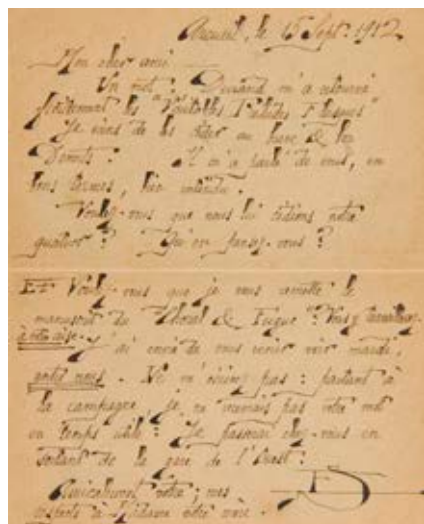 Arcueil, le 15 Sept. 1912
Mon cher ami
Un mot : Durand m'a retourné
poliment les "Véritables Préludes Flasques"
Je viens de les céder au brave & bon
Demets : Il m'a parlé de vous, en
bons termes, bien entendu.
Voulez-vous que nous lui cédions notre
quatuor ? Qu'en pensez-vous ?
Et Voulez-vous que je vous remette le
manuscrit du "Choral & Fugue" ? Vous y travaillerez
à votre aise. J'ai envie de vous venir voir mardi,
après midi. Ne m'écrivez pas : partant à
la campagne, je ne recevrais pas votre mot
en temps utile : Je passerai chez-vous en
sortant de la gare de l'Ouest :
Amicalement votre ; mes
respects à Madame votre mère.
ES